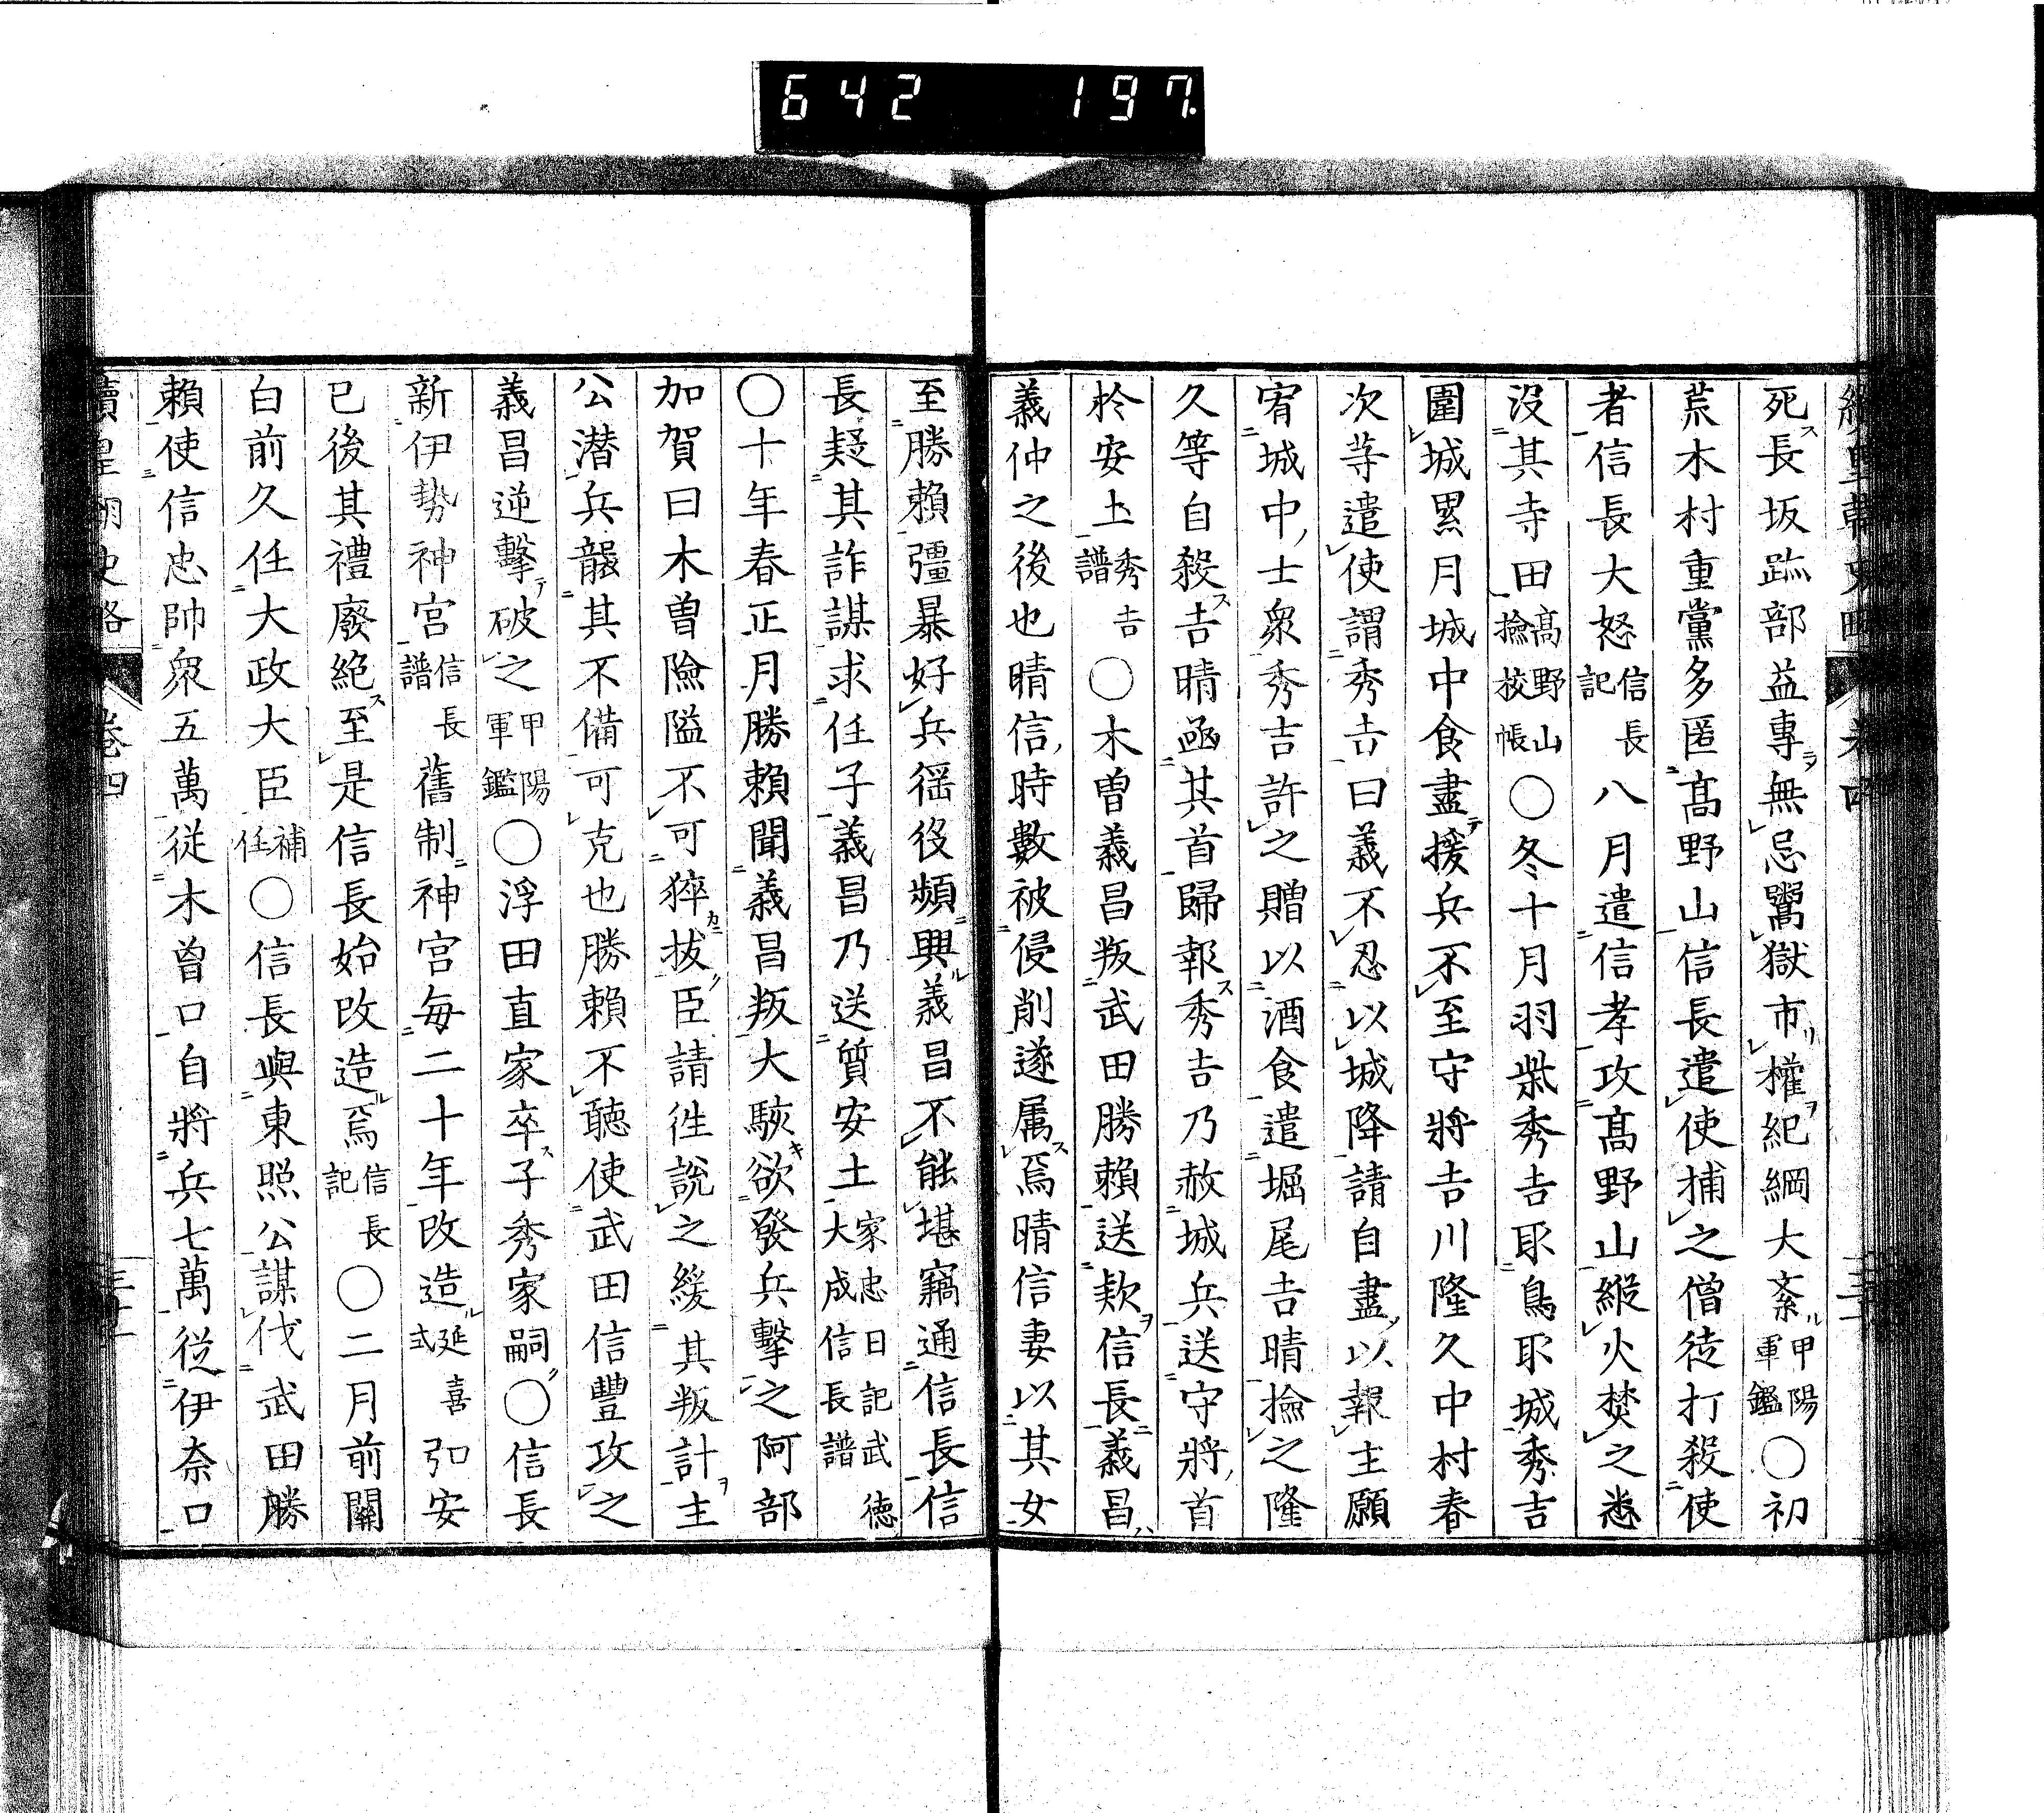 642 197
死長坂跡部益專無忌鬻獄市權紀綱大紊甲陽軍鑑〇初
荒木村重黨多匿髙野山信長遣使捕之僧徒打殺使
者信長大怒信長記八月遣信孝攻髙野山縱火焚之悉
沒其寺田髙野山撿挍帳〇冬十月羽柴秀吉取鳥取城秀吉
圍城累月城中食盡援兵不至守將吉川隆久中村春
次等遣使謂秀吉曰義不忍以城降請自盡以報主願
宥城中士衆秀吉許之贈以酒食遣堀尾吉晴撿之隆
久等自殺吉晴函其首歸報秀吉乃赦城兵送守將首
於安土秀吉譜〇木曽義昌叛武田勝賴送欵信長義昌
義仲之後也晴信時數被侵削遂属焉晴信妻以其女
至勝賴彊暴好兵徭役頻興義昌不能堪竊通信長信
長疑其詐謀求任子義昌乃送質安土家忠日記武德大成信長譜
〇十年春正月勝賴聞義昌叛大駭欲發兵擊之阿部
加賀曰木曽險隘不可猝拔臣請徃說之緩其叛計主
公潛兵襲其不備可克也勝賴不聽使武田信豐攻之
義昌逆擊破之甲陽軍鑑〇浮田直家卒子秀家嗣〇信長
新伊勢神宮信長譜舊制神宮每二十年改造延喜式弘安
已後其禮廢絶至是信長始改造焉信長記〇二月前關
白前久任大政大臣補任〇信長與東照公謀伐武田勝
賴使信忠帥衆五萬從木曽口自將兵七萬從伊奈口
續皇朝史略 卷四